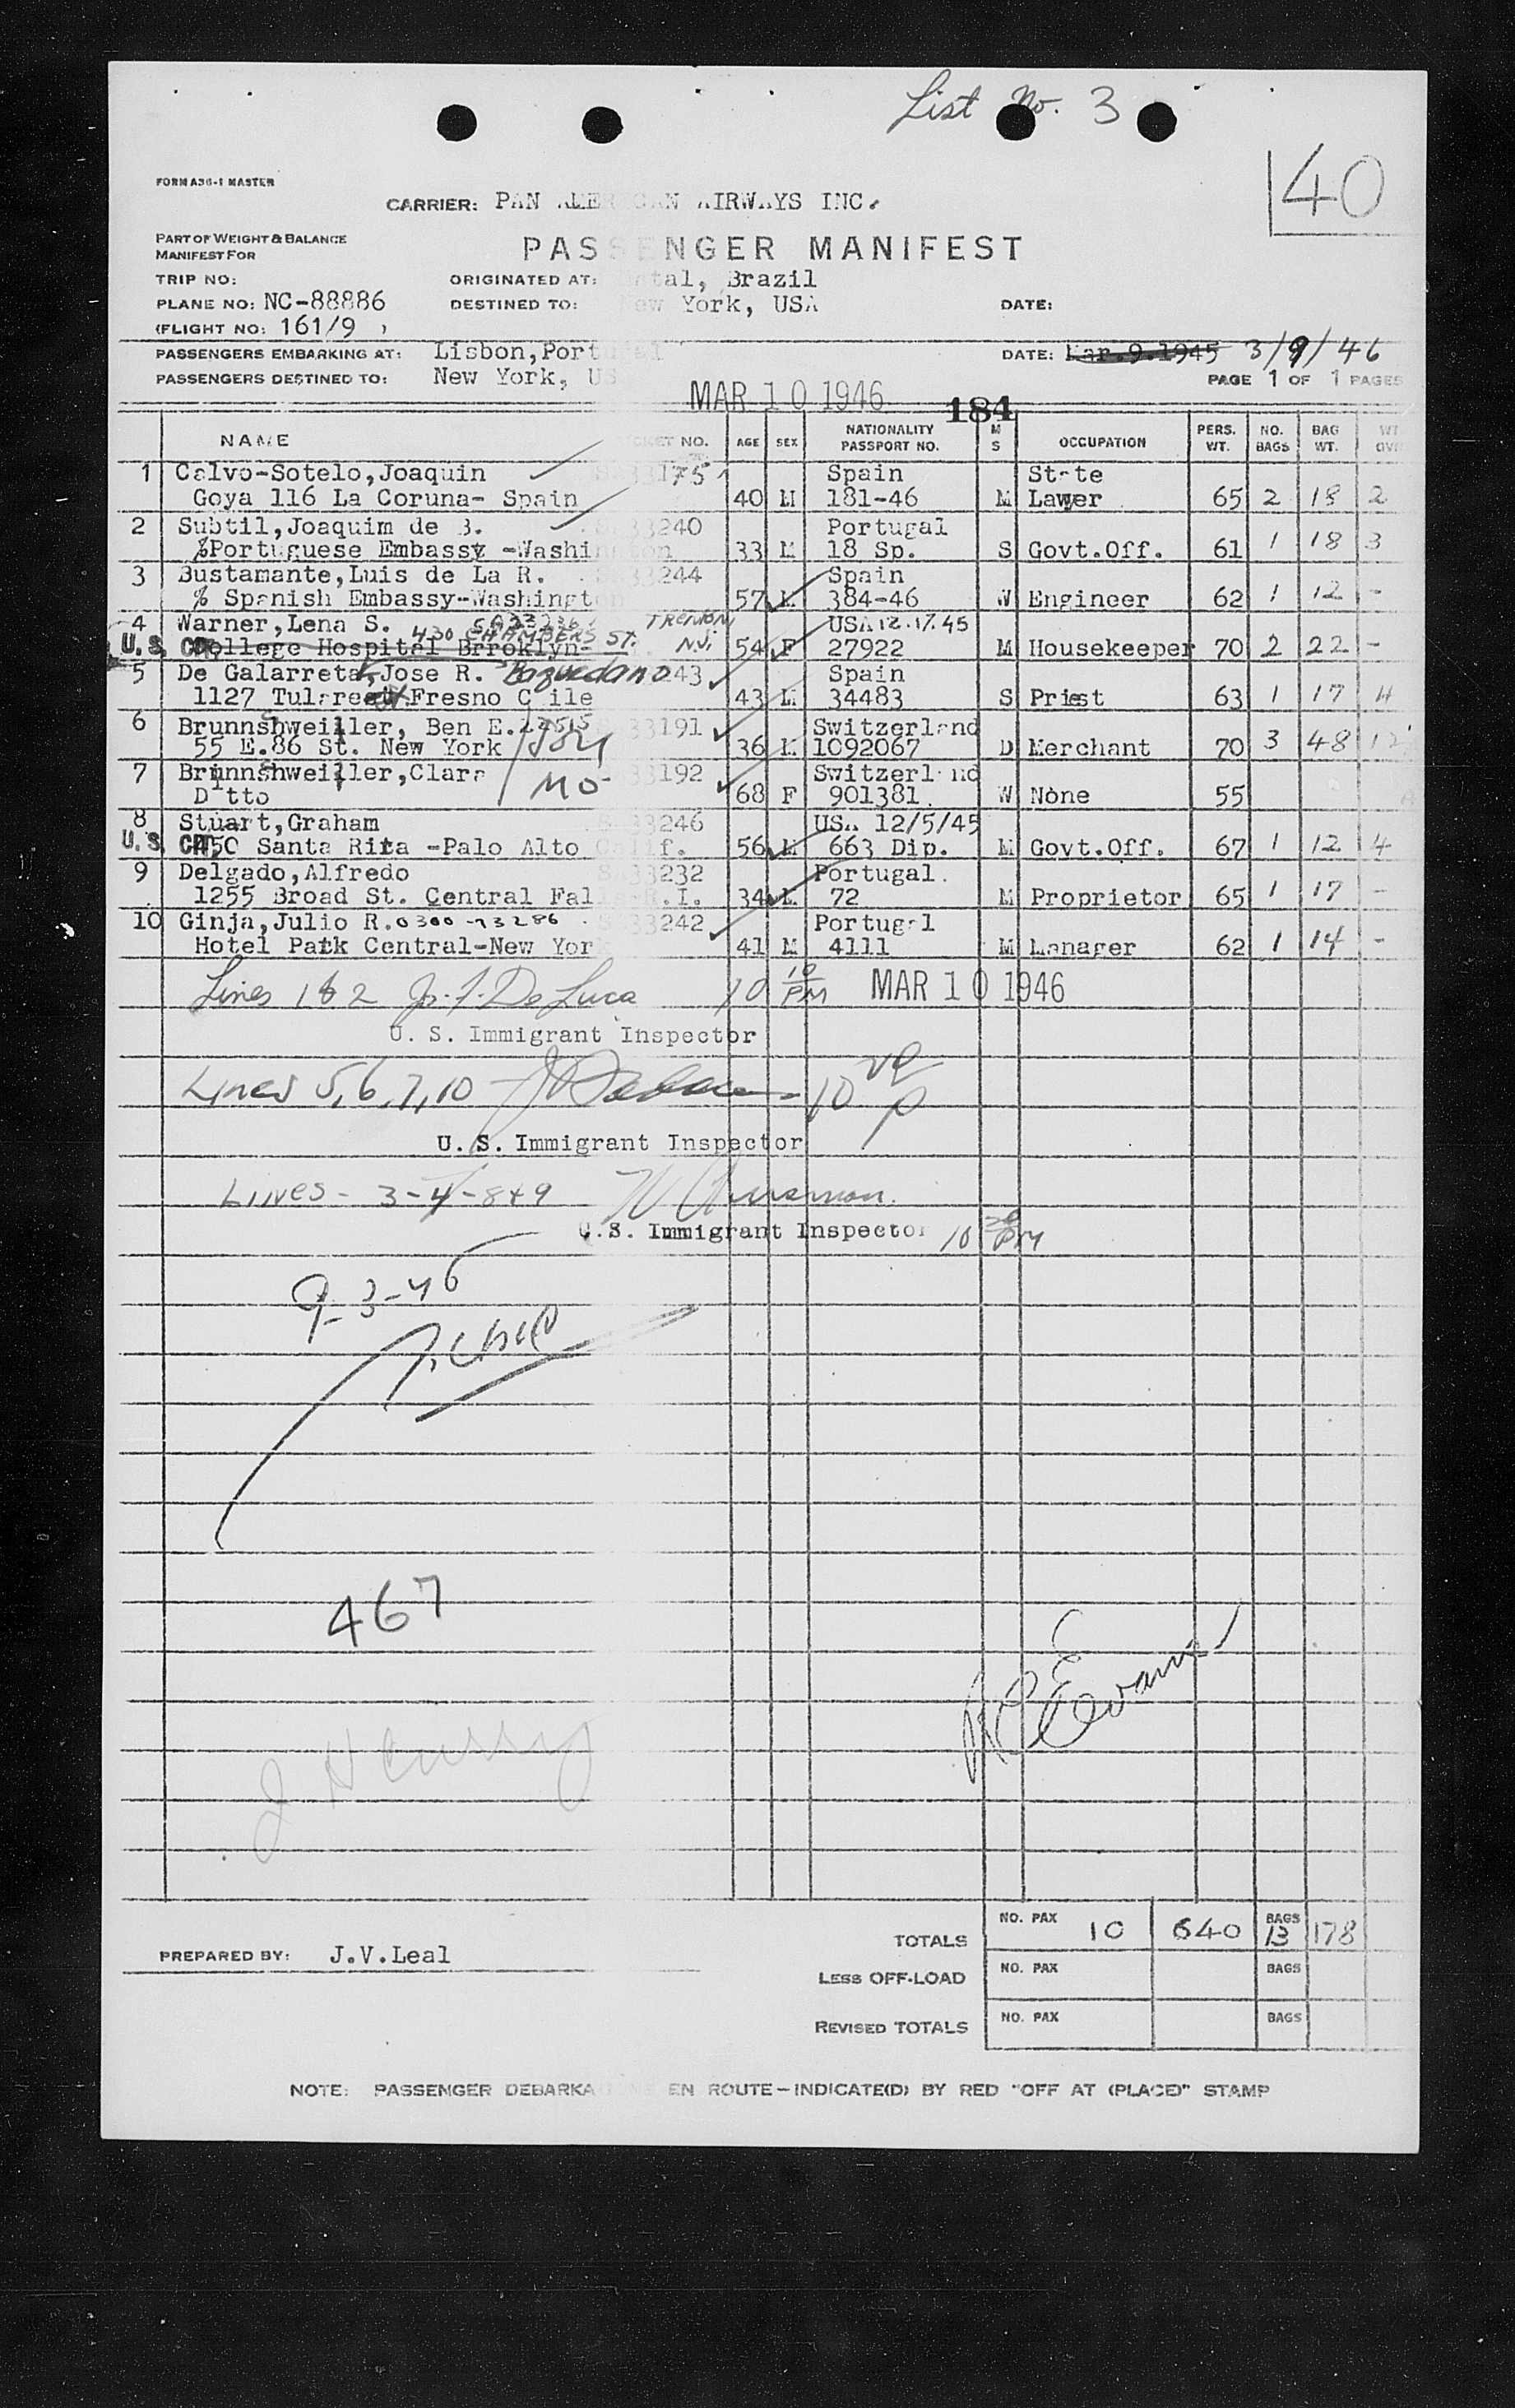 List No. 3
40
FORM A36-1 MASTER
CARRIER: PAN AMERICAN AIRWAYS INC.
PART OF WEIGHT & BALANCE
MANIFEST FOR
PASSENGER MANIFEST
TRIP NO:
ORIGINATED AT: Natal, Brazil
PLANE NO: NC-88886
DESTINED TO: New York, USA
DATE:
(FLIGHT NO: 161/9 )
PASSENGERS EMBARKING AT: Lisbon, Portugal
DATE: Mar.9.1945 3/9/46
PASSENGERS DESTINED TO: New York, US
PAGE 1 OF 1 PAGES
MAR 10 1946
184
NAME TICKET NO. AGE SEX NATIONALITY PASSPORT NO. M S OCCUPATION PERS. WT. NO. BAGS BAG WT.
1 Calvo-Sotelo,Joaquin 33175 Spain State
Goya 116 La Coruna- Spain 40 M 181-46 M Lawyer 65 2 18 2
2 Subtil,Joaquim de B. 33240 Portugal
%Portuguese Embassy -Washington 33 M 18 Sp. S Govt.Off. 61 1 18 3
3 Bustamante,Luis de La R. 33244 Spain
% Spanish Embassy-Washington 57 M 384-46 W Engineer 62 1 12 -
4 Warner,Lena S. 430 CHAMBERS ST. TRENTON N.J. USA 12.17.45
U.S. CIT. College Hospital Brroklyn- 54 F 27922 M Housekeeper 70 2 22 -
5 De Galarreta,Jose R. Baquedano 243 Spain
1127 Tulare Fresno C ile 43 M 34483 S Priest 63 1 17 4
6 Brunnshweiller, Ben E. 33191 Switzerland
55 E.86 St. New York Son 36 M 1092067 D Merchant 70 3 48 12
7 Brunnshweiller,Clara Mo 33192 Switzerland
D tto 68 F 901381 W None 55
8 Stuart,Graham 33246 USA 12/5/45
U.S. CIT. 50 Santa Rita -Palo Alto Calif. 56 M 663 Dip. M Govt.Off. 67 1 12 4
9 Delgado,Alfredo 33232 Portugal.
1255 Broad St. Central Falls R.I. 34 M 72 M Proprietor 65 1 17 -
10 Ginja,Julio R. 0300-73286 33242 Portugal
Hotel Park Central-New York 41 M 4111 M Manager 62 1 14 -
Lines 1 & 2 J. F. De Luca 10 10 PM MAR 10 1946
U. S. Immigrant Inspector
Lines 5, 6, 7, 10 10 P
U. S. Immigrant Inspector
Lines - 3-4-8&9
U.S. Immigrant Inspector 10 PM
9-3-46
467
R C Evans
TOTALS NO. PAX 10 640 BAGS 13 178
PREPARED BY: J.V.Leal
LESS OFF-LOAD NO. PAX BAGS
REVISED TOTALS NO. PAX BAGS
NOTE: PASSENGER DEBARKATIONS EN ROUTE - INDICATE(D) BY RED "OFF AT (PLACE)" STAMP